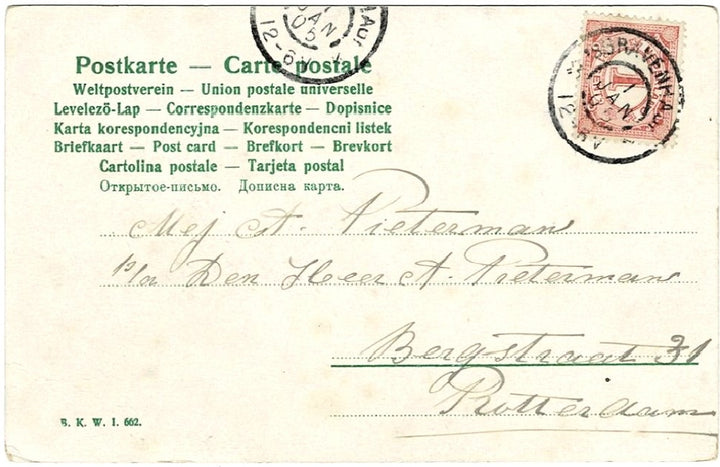 JAN
05
12-6V
Postkarte — Carte postale
Weltpostverein — Union postale universelle
Levelező-Lap — Correspondenzkarte — Dopisnice
Karta korespondencyjna — Korespondencni listek
Briefkaart — Post card — Brefkort — Brevkort
Cartolina postale — Tarjeta postal
Открытое-письмо. Дописна карта.
'S GRAVENHAGE
1
JAN
05
12-6V
1
Mej A. Pieterman
p/a Den Heer A. Pieterman
Bergstraat 31
Rotterdam
B. K. W. I. 662.